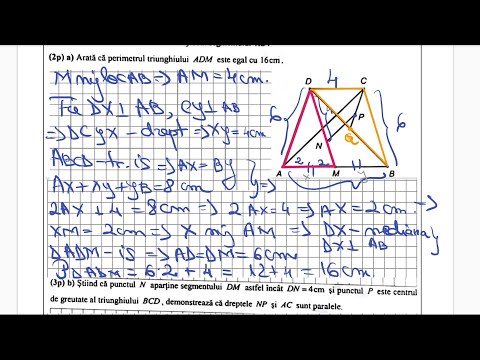 (2p) a) Arată că perimetrul triunghiului ADM este egal cu 16cm.
M mijloc AB => AM = 4cm.
Fie DX ⊥ AB, CY ⊥ AB
=> DCYX - drept => XY = 4cm
ABCD - tr. is => AX = BY
AX + XY + YB = 8 cm } =>
2AX + 4 = 8cm => 2AX = 4 => AX = 2cm. =>
XM = 2cm => X mij AM => DX - mediana
DX ⊥ AB
ΔADM - is => AD = DM = 6cm
PΔADM = 6·2 + 4 = 12 + 4 = 16cm
D 4 C
6 6
P
N
A 2 2 M B
(3p) b) Știind că punctul N aparține segmentului DM astfel încât DN = 4cm și punctul P este centrul
de greutate al triunghiului BCD, demonstrează că dreptele NP și AC sunt paralele.